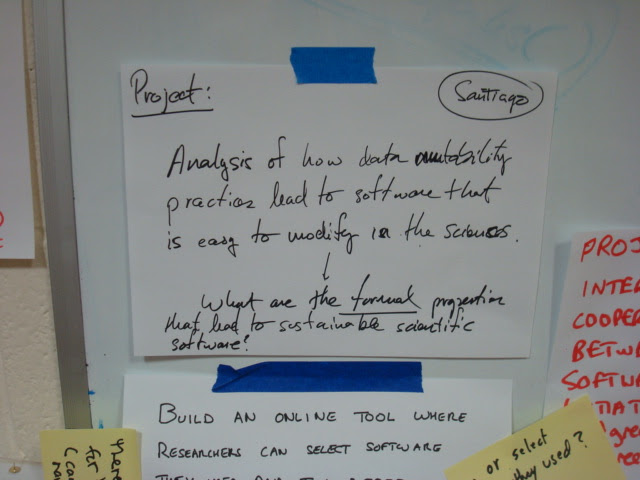 Project:
Santiago
Analysis of how data mutability
practices lead to software that
is easy to modify in the sciences.
↓
What are the formal properties
that lead to sustainable scientific
software?
BUILD AN ONLINE TOOL WHERE
RESEARCHERS CAN SELECT SOFTWARE
or select
they used?
PROJ
INTER
COOPER
BETW
SOFTW